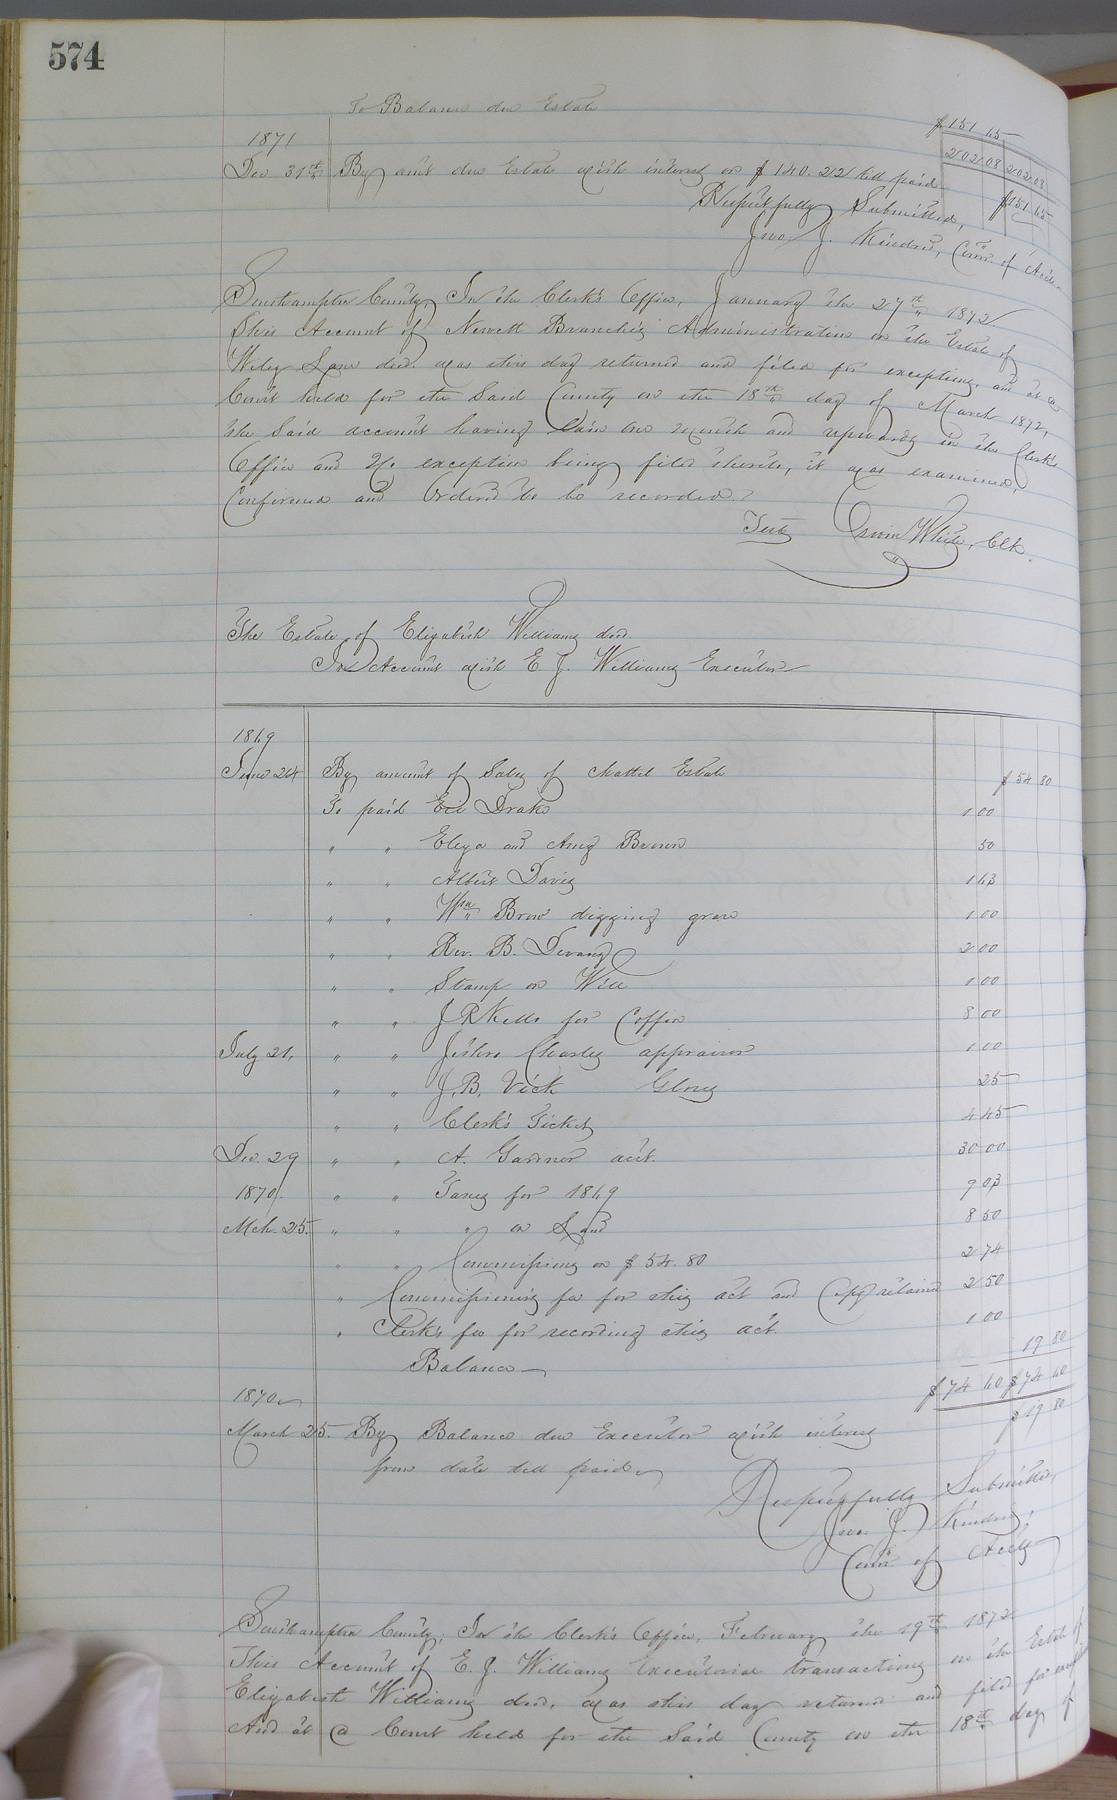 574
To Balance due Estate
$151 65
1871
202 08 202 08
Dec 31st By amt due Estate with interest on $140.22 till paid
$151 65
Respectfully Submitted,
Jno. J. Kindred, Comr. of Accts.
Southampton County, In the Clerk's Office, January the 27th 1872
This Account of Newett Branch's Administration on the Estate of
Wiley Lane decd. was this day returned and filed for exceptions, and at a
Court held for the Said County on the 18th day of March 1872,
the Said account having lain one month and upwards in the Clerk's
Office and No exception being filed thereto, it was examined,
Confirmed and Ordered to be recorded.
Teste White, Clk.
The Estate of Elizabeth Williams decd.
In Account with E. J. Williams Executor
1869
June 24 By amount of Sales of Chattel Estate $54 80
To paid Drake 1 00
" " Eliza and Amy Brown 50
" " Albert Davis 1 63
" " Wm Brow digging grave 1 00
" " Rev. B. Devany 2 00
" " Stamp on Will 1 00
" " J. R. Kello for Coffin 8 00
July 21, " " Jethro Charles appraiser 1 00
" " J. B. Vick Gloves 25
" " Clerk's Tickets 4 45
Dec. 29 " " A. Gardner acct. 30 00
1870. " " Taxes for 1869 9 03
Mch. 25. " " " on Land 8 50
" " Commissions on $54.80 2 74
" Commissioner's fee for this act and Copy retained 2 50
" Clerk's fee for recording this act. 1 00
Balance 19 80
$74 60 $74 60
1870
March 25. By Balance due Executor with interest $19 80
from date till paid
Respectfully Submitted,
Jno. J. Kindred,
Comr. of Accts
Southampton County, In the Clerk's Office, February the 19th 1872
This Account of E. J. Williams Executorial transactions on the Estate of
Elizabeth Williams decd. was this day returned and filed for exceptions
And at a Court held for the Said County on the 18th day of